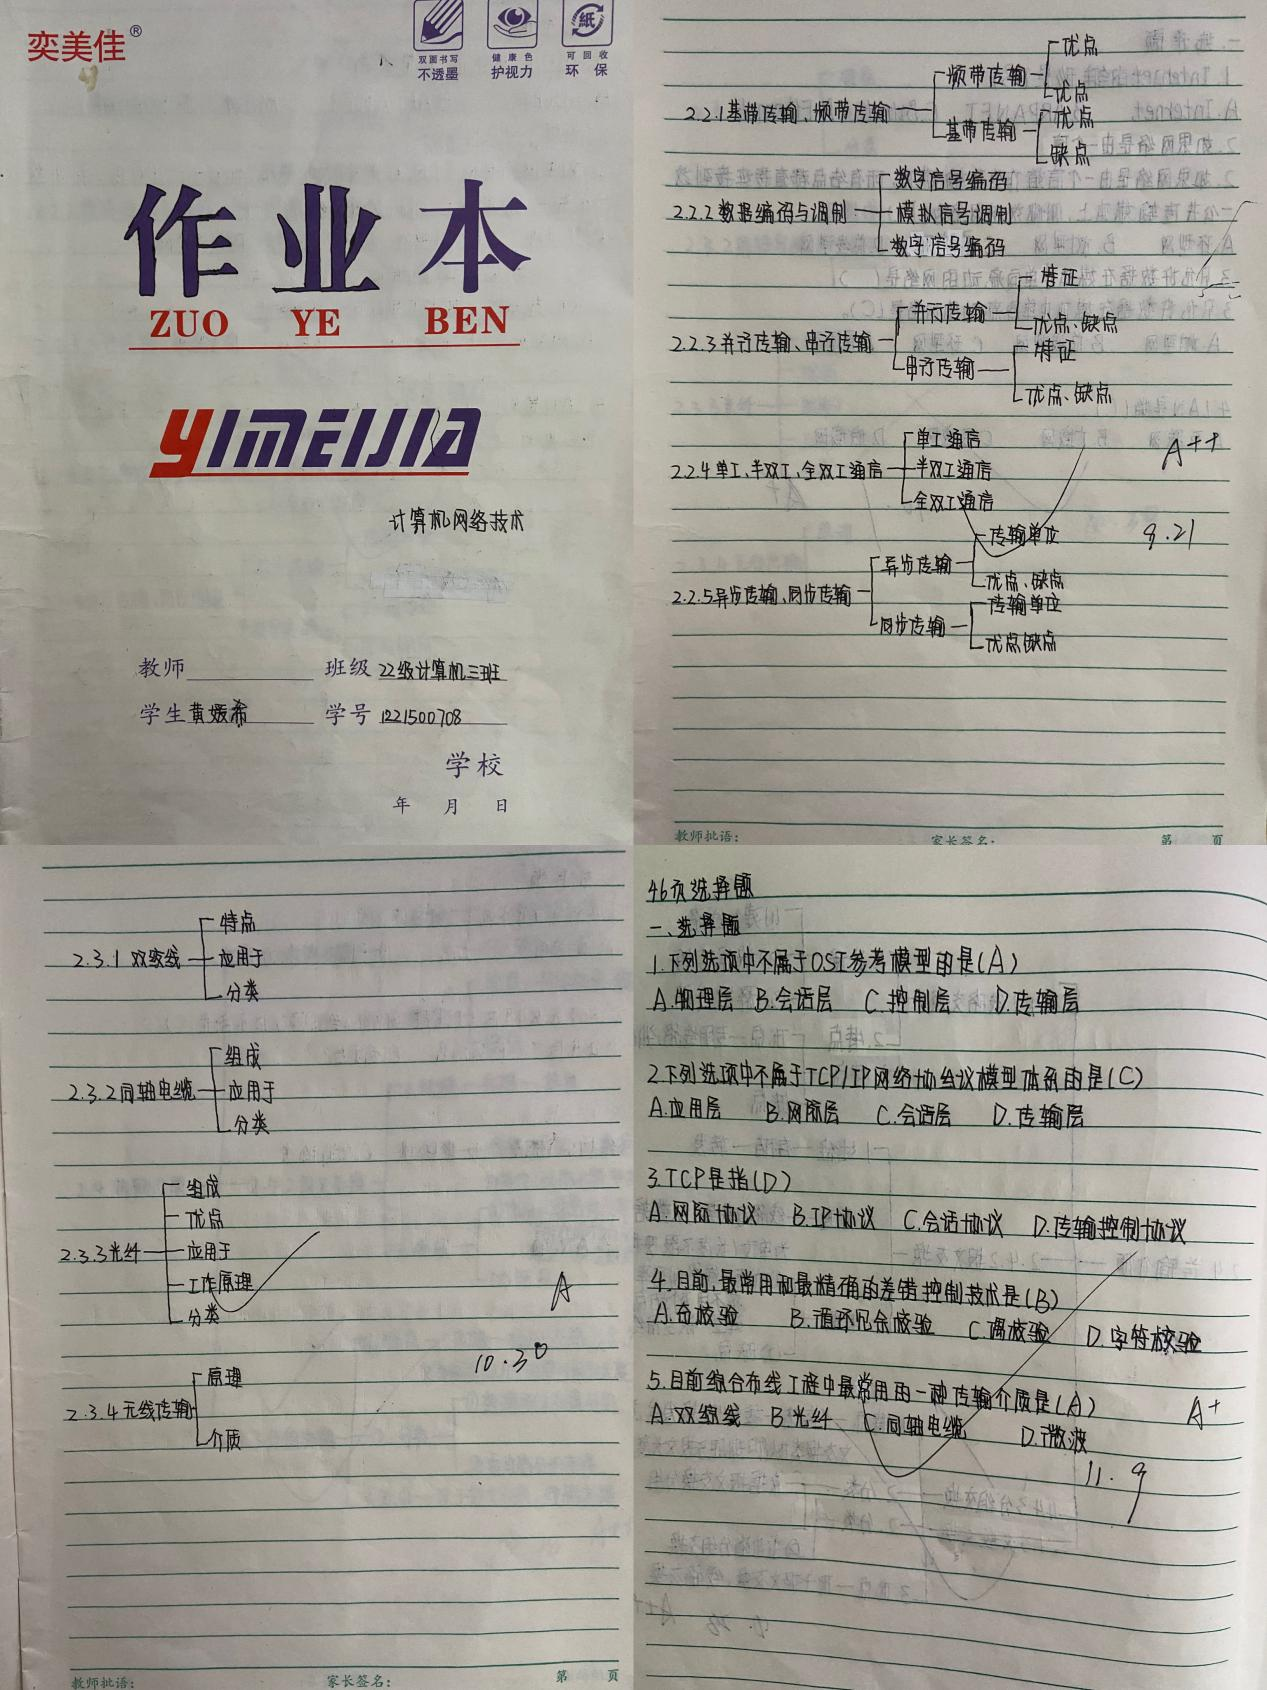 奕美佳®
双面书写
不透墨
健康色
护视力
可回收
环保
紙
作业本
ZUO YE BEN
YIMEIJIA
计算机网络技术
教师 班级 22级计算机三班
学生 黄媛希 学号 1221500708
学校
年 月 日
2.2.1基带传输、频带传输
频带传输
优点
优点
基带传输
优点
缺点
2.2.2数据编码与调制
数字信号编码
模拟信号调制
数字信号编码
2.2.3并行传输、串行传输
并行传输
特征
优点、缺点
串行传输
特征
优点、缺点
2.2.4单工、半双工、全双工通信
单工通信
半双工通信
全双工通信
A++
9.21
2.2.5异步传输、同步传输
异步传输
传输单位
优点、缺点
同步传输
传输单位
优点缺点
教师批语: 家长签名: 第 页
2.3.1双绞线
特点
应用于
分类
2.3.2同轴电缆
组成
应用于
分类
2.3.3光纤
组成
优点
应用于
工作原理
分类
A
10.30
2.3.4无线传输
原理
介质
教师批语: 家长签名: 第 页
46页选择题
一、选择题
1.下列选项中不属于OSI参考模型的是(A)
A.物理层 B.会话层 C.控制层 D.传输层
2.下列选项中不属于TCP/IP网络协议模型体系的是(C)
A.应用层 B.网际层 C.会话层 D.传输层
3.TCP是指(D)
A.网际协议 B.IP协议 C.会话协议 D.传输控制协议
4.目前,最常用和最精确的差错控制技术是(B)
A.奇校验 B.循环冗余校验 C.偶校验 D.字符校验
5.目前综合布线工程中最常用的一种传输介质是(A)
A.双绞线 B.光纤 C.同轴电缆 D.微波
A+
11.9